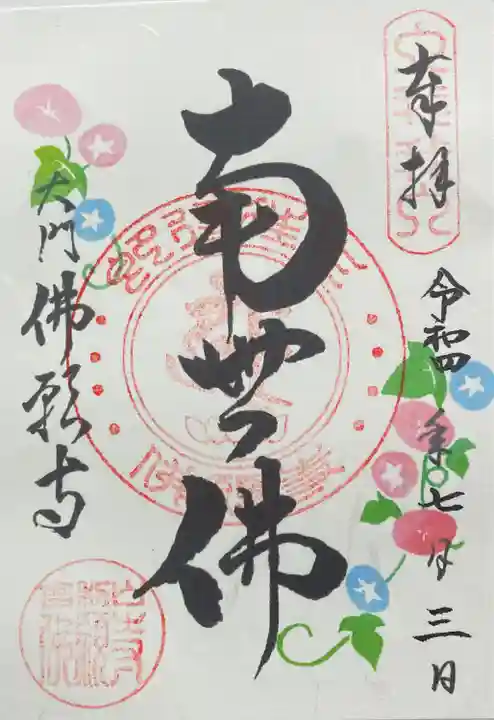 奉拝
令和四年七月三日
南無佛
大門佛願寺